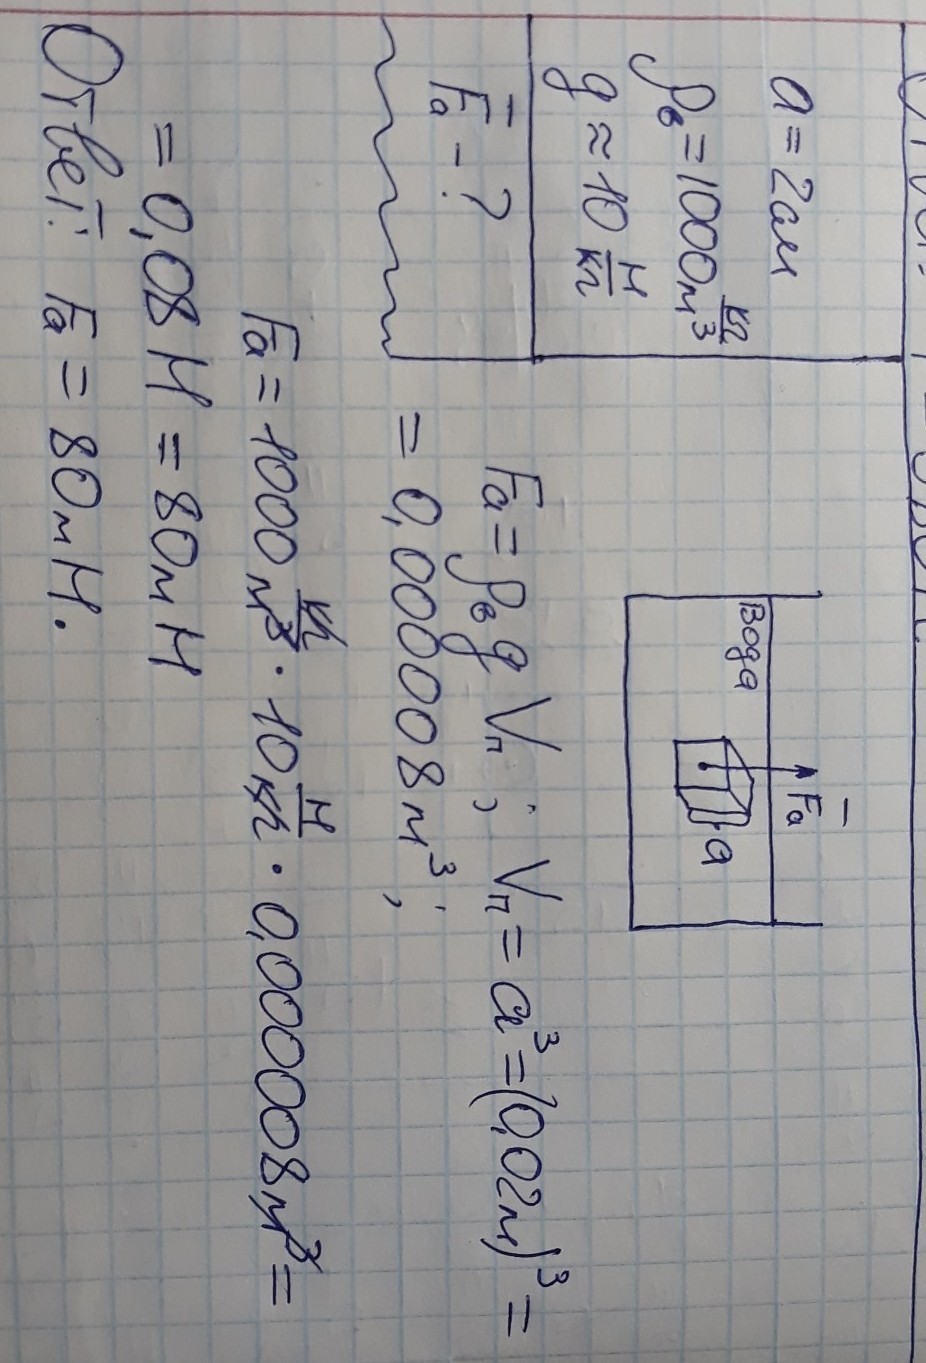 a = 2см
ρв = 1000 кг/м³
g ≈ 10 Н/кг
Fа - ?
Fа
Вода
a
Fа = ρв g Vп; Vп = a³ = (0,02м)³ =
= 0,000008 м³;
Fа = 1000 кг/м³ · 10 Н/кг · 0,000008 м³ =
= 0,08 Н = 80 мН
Ответ: Fа = 80 мН.